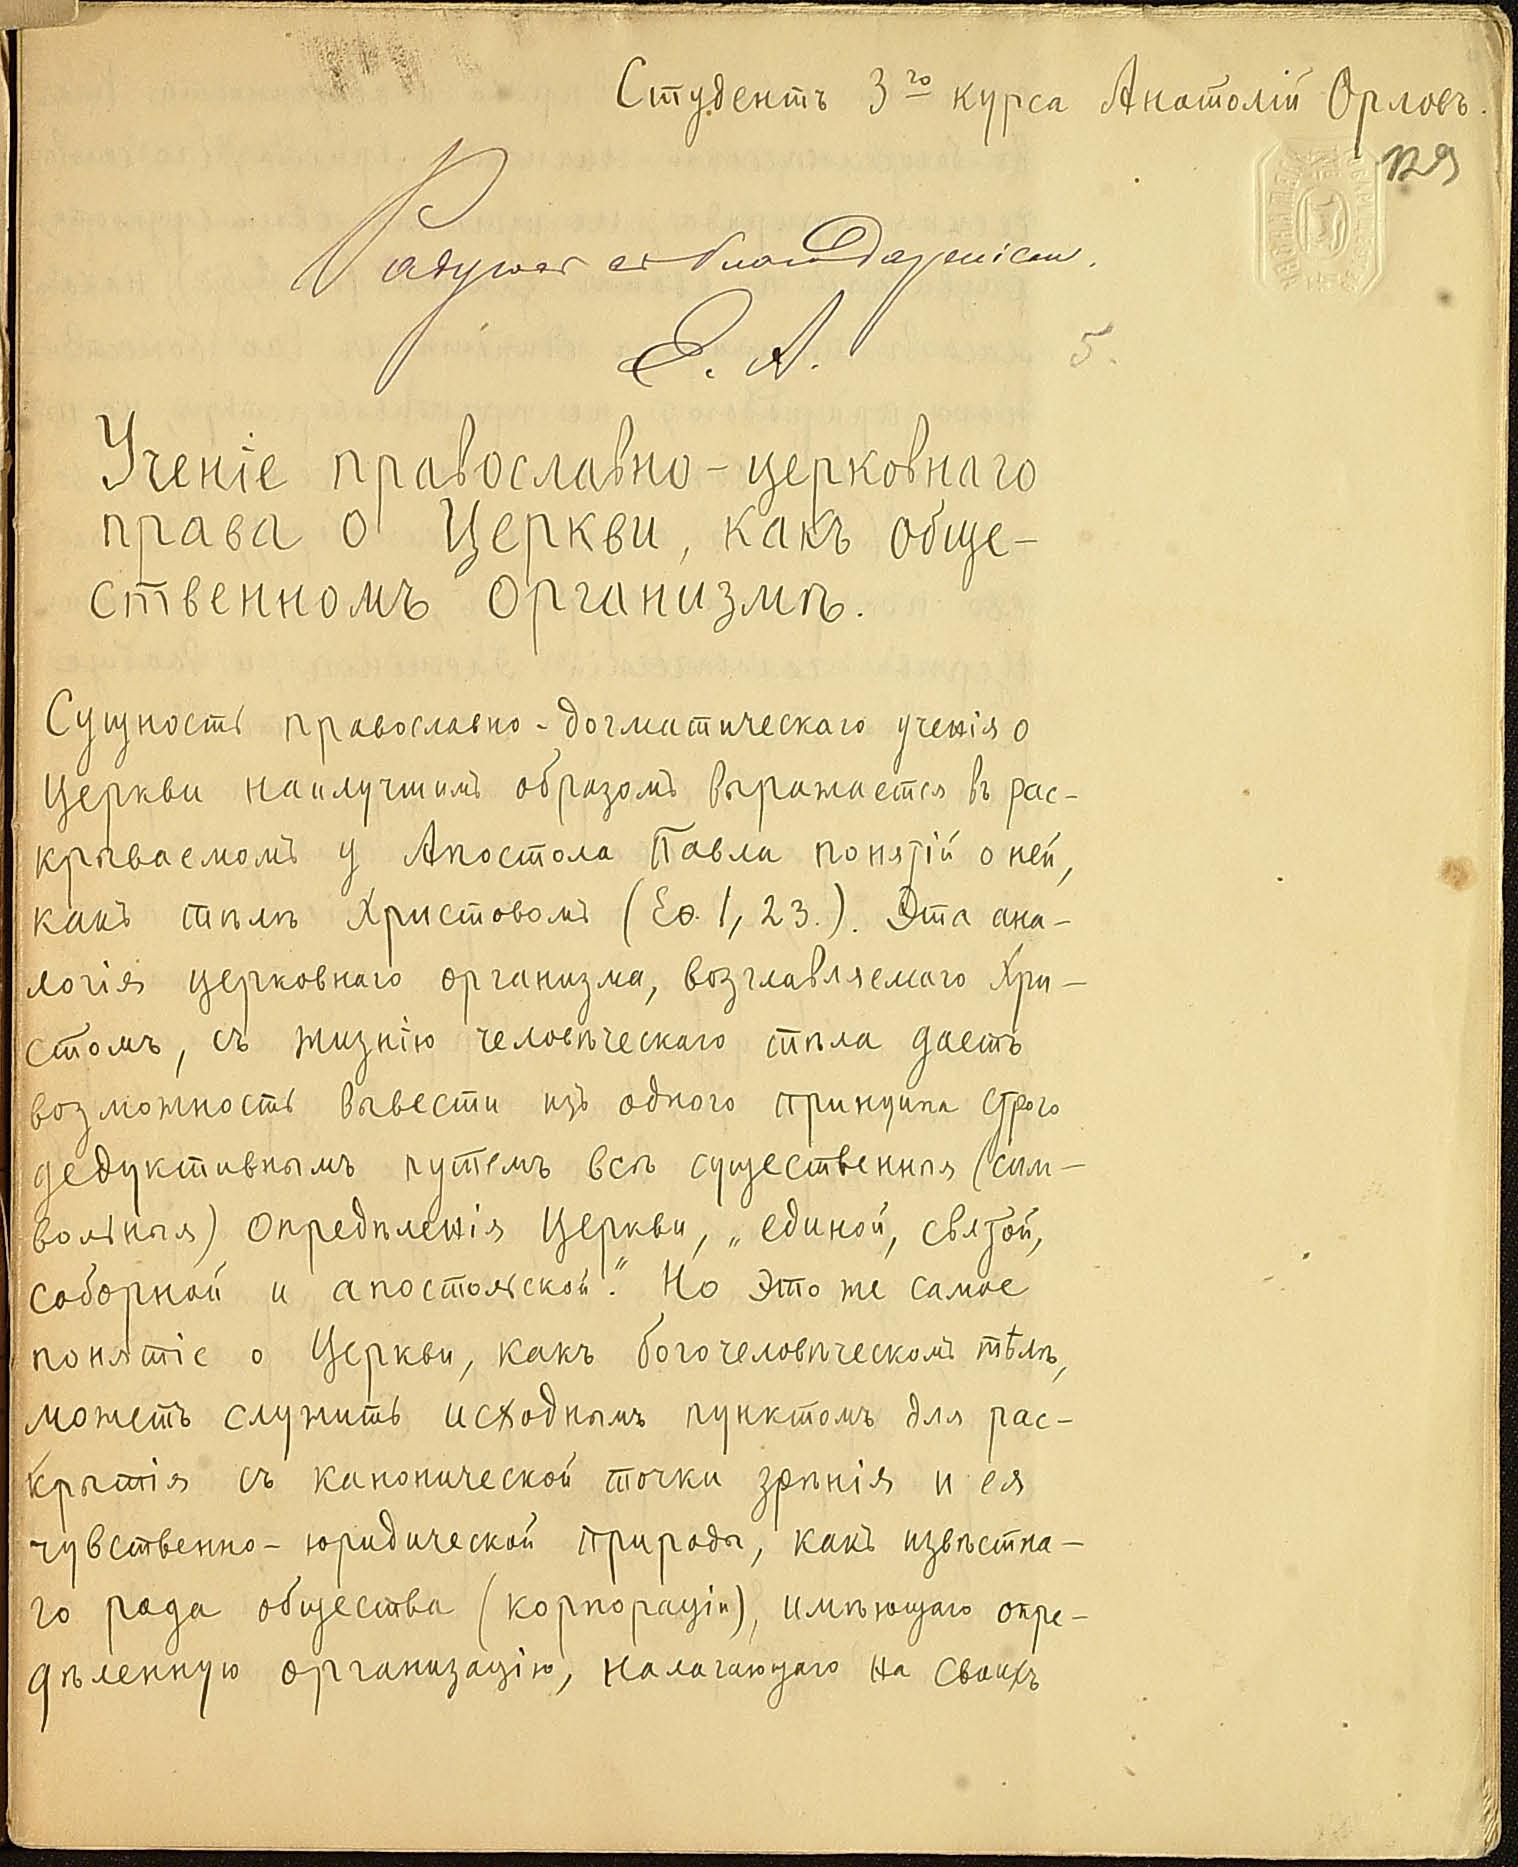 Студентъ 3го курса Анатолій Орловъ.
129
Радуюсь и благодарю
Е. А.
5.
Ученіе православно-церковнаго
права о Церкви, какъ обще-
ственномъ организмѣ.
Сущность православно-догматическаго ученія о
Церкви наилучшимъ образомъ выражается въ рас-
крываемомъ у Апостола Павла понятій о ней,
какъ тѣлѣ Христовомъ (Еѳ. 1, 23.). Эта ана-
логія церковнаго организма, возглавляемаго Хри-
стомъ, съ жизнію человѣческаго тѣла даетъ
возможность вывести изъ одного принципа строго
дедуктивнымъ путемъ всѣ существенныя (сим-
вольныя) опредѣленія Церкви, „единой, святой,
соборной и апостольской“. Но это же самое
понятіе о Церкви, какъ богочеловѣческомъ тѣлѣ,
можетъ служить исходнымъ пунктомъ для рас-
крытія съ канонической точки зрѣнія и ея
чувственно-юридической природы, какъ извѣстна-
го рода общества (корпораціи), имѣющаго опре-
дѣленную организацію, налагающаго на своихъ